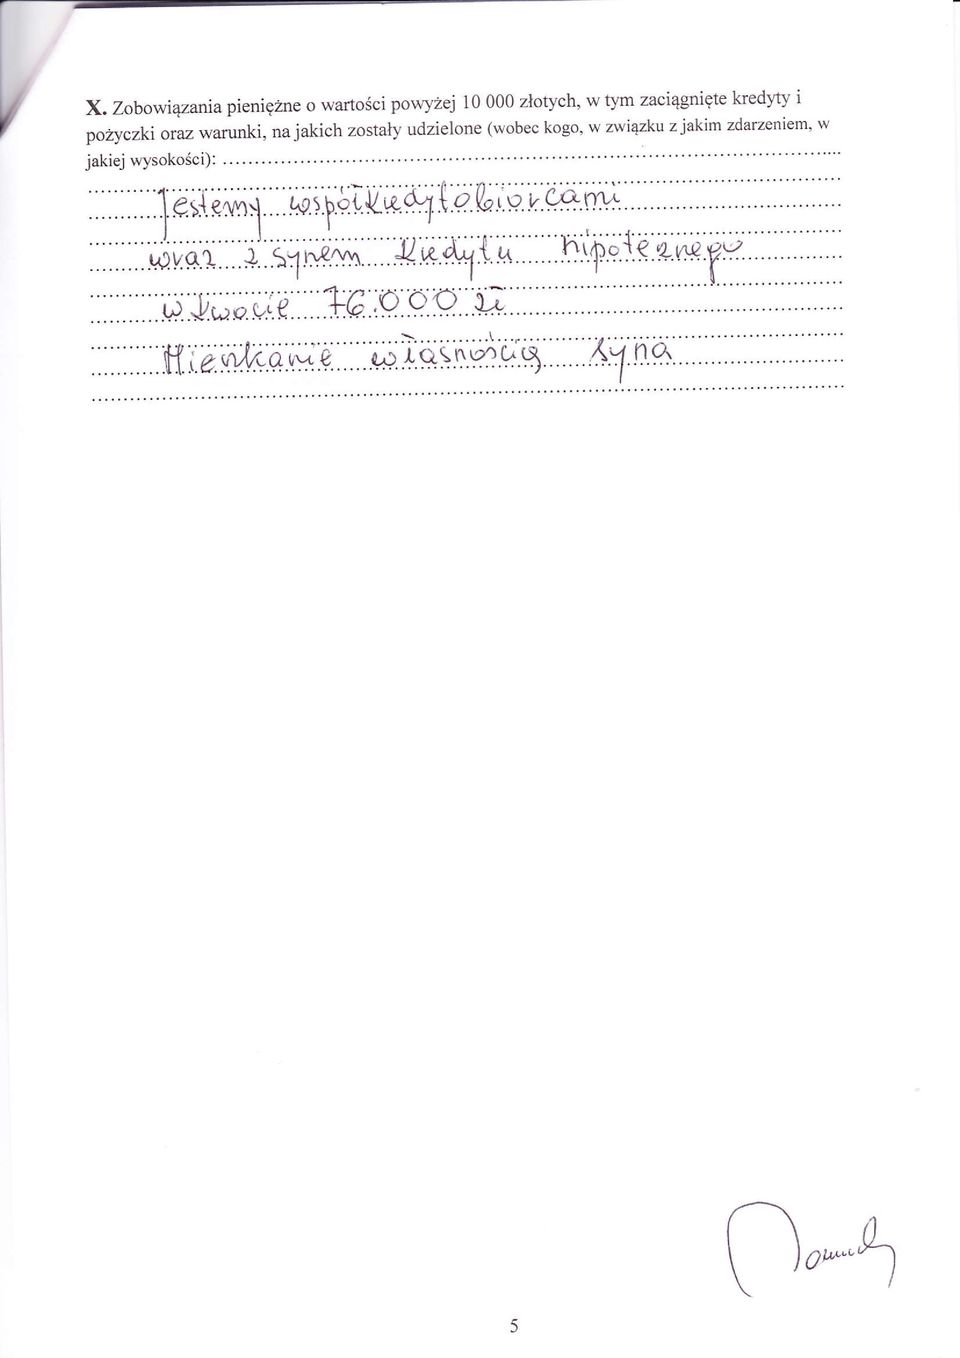 X. Zobowiązania pieniężne o wartości powyżej 10 000 złotych, w tym zaciągnięte kredyty i
pożyczki oraz warunki, na jakich zostały udzielone (wobec kogo, w związku z jakim zdarzeniem, w
jakiej wysokości):
Jestemy współkredytobiorcami
wraz z synem kredytu hipotecznego
w kwocie 76.000 zł
Mieszkanie własnością syna
5